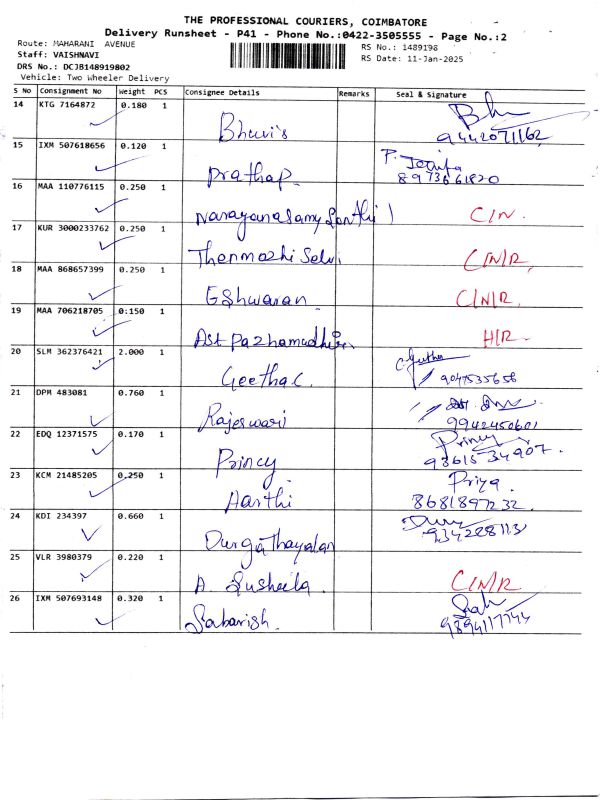 THE PROFESSIONAL COURIERS, COIMBATORE
Delivery Runsheet - P41 - Phone No.:0422-3505555 - Page No.:2
Route: MAHARANI AVENUE
RS No.: 1489198
Staff: VAISHNAVI
RS Date: 11-Jan-2025
DRS No.: DCJB148919802
Vehicle: Two Wheeler Delivery
S No Consignment No Weight PCS Consignee Details Remarks Seal & Signature
14 KTG 7164872 0.180 1
Bhuvi's
9442071162
15 IXM 507618656 0.120 1
Prathap
P.
8973661820
16 MAA 110776115 0.250 1
Narayanasamy Santhi C/N.
17 KUR 3000233762 0.250 1
Thenmozhi Selvi C/N/R,
18 MAA 868657399 0.250 1
Eshwaran C/N/R.
19 MAA 706218705 0:150 1
Ast Pazhamudhir H/R
20 SLM 362376421 2.000 1
Geetha C.
9047535656
21 DPM 483081 0.760 1
Rajeswari
9942450601
22 EDQ 12371575 0.170 1
Princy
Princy
9861534907.
23 KCM 21485205 0.250 1
Harthi
Priya.
8681897232
24 KDI 234397 0.660 1
Durgathayalan
25 VLR 3980379 0.220 1
A. Susheela. C/N/R
26 IXM 507693148 0.320 1
Sabarish.
9894117744